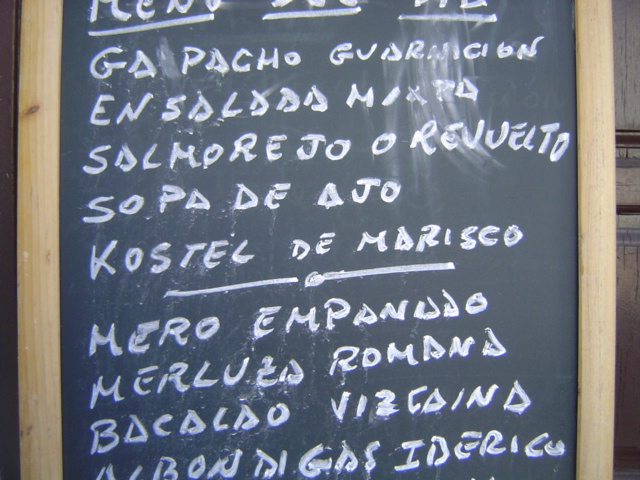 MENÚ DEL DIA
GAPACHO GUARNICION
ENSALADA MIXTA
SALMOREJO O REVUELTO
SOPA DE AJO
KOSTEL DE MARISCO
MERO EMPANADO
MERLUZA ROMANA
BACALAO VIZCAINA
ALBONDIGAS IBERICO